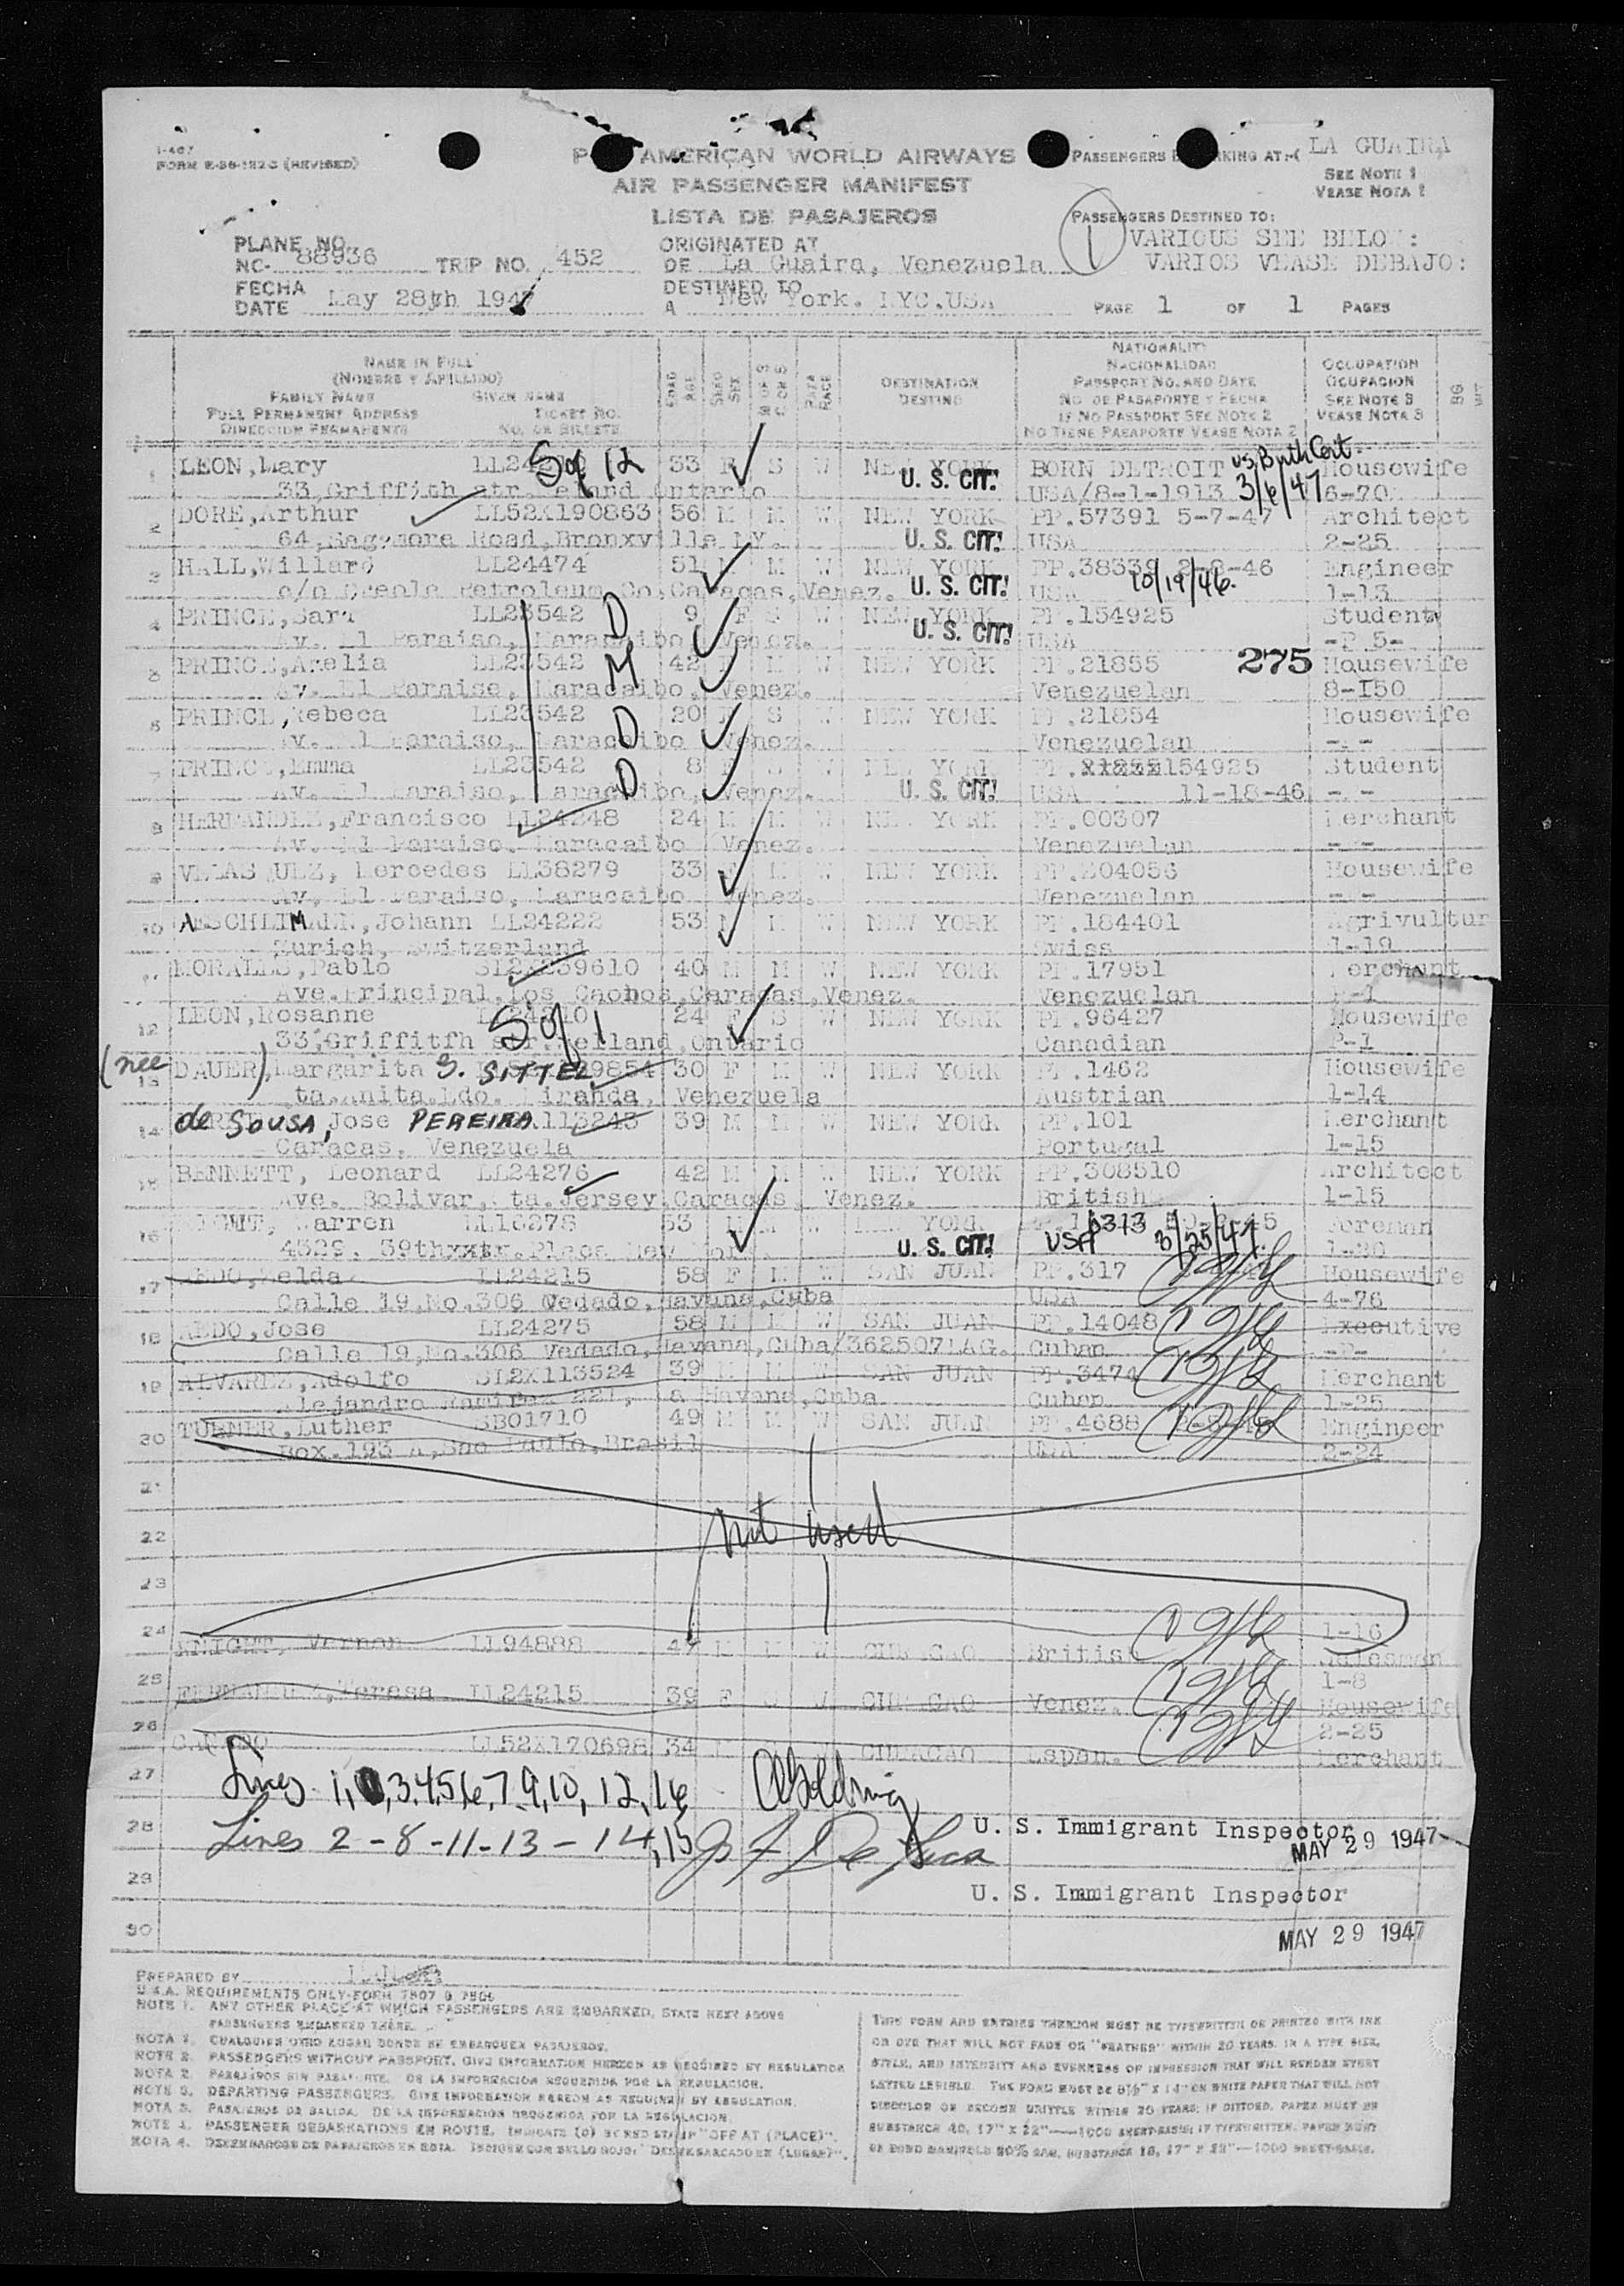 I-467
FORM E-36-192C (REVISED)
AMERICAN WORLD AIRWAYS
PASSENGERS AT:-( LA GUAIRA
AIR PASSENGER MANIFEST
SEE NOTE 1
VEASE NOTA 1
LISTA DE PASAJEROS
PASSENGERS DESTINED TO:
1 VARIOUS SEE BELOW:
VARIOS VEASE DEBAJO:
PLANE NO.
NC- 88936 TRIP NO. 452
ORIGINATED AT
DE La Guaira, Venezuela
FECHA
DATE May 28th 1947
DESTINED TO
A New York. NYC.USA
PAGE 1 OF 1 PAGES
NAME IN FULL
(NOMBRE Y APELLIDO)
FAMILY NAME GIVEN NAME
FULL PERMANENT ADDRESS TICKET NO.
DIRECCION PERMANENTE NO. DE BILLETE
EDAD AGE
SEXO SEX
RAZA RACE
DESTINATION
DESTINO
NATIONALITY
NACIONALIDAD
PASSPORT NO. AND DATE
NO DE PASAPORTE Y FECHA
IF NO PASSPORT SEE NOTE 2
NO TIENE PASAPORTE VEASE NOTA 2
OCCUPATION
OCUPACION
SEE NOTE 3
VEASE NOTA 3
1 LEON, Mary Sq 12 33 F S W NEW YORK BORN DETROIT US Birth Cert. Housewife
33, Griffith str. Ontario U. S. CIT. USA/8-1-1913 3/6/47 6-70
2 DORE, Arthur LL52X190863 56 M M W NEW YORK PP.57391 5-7-47 Architect
64, Sagamore Road, Bronxville NY. U. S. CIT. USA 2-25
3 HALL, Willard LL24474 51 M M W NEW YORK PP.38339 2-8-46 Engineer
c/o Creole Petroleum Co. Caracas, Venez. U. S. CIT. USA 10/19/46. 1-13
4 PRINCE, Sara LL23542 D 9 F S W NEW YORK PP.154925 Student
Av. El Paraiso, Maracaibo Venez. U. S. CIT. USA -P 5-
5 PRINCE, Amelia LL23542 M 42 F M W NEW YORK PP.21855 275 Housewife
Av. El Paraiso, Maracaibo, Venez. Venezuelan 8-I50
6 PRINCE, Rebeca LL23542 D 20 F S W NEW YORK PP.21854 Housewife
Av. El Paraiso, Maracaibo Venez. Venezuelan
7 PRINCE, Emma LL23542 D 8 F S W NEW YORK PP. 154925 Student
Av. El Paraiso, Maracaibo, Venez. U. S. CIT. USA 11-18-46
8 HERNANDEZ, Francisco LL24248 24 M M W NEW YORK PP.00307 Merchant
Av. El Paraiso. Maracaibo Venez. Venezuelan
9 VELASQUEZ, Mercedes LL38279 33 F M W NEW YORK PP.204056 Housewife
Av. El Paraiso, Maracaibo Venez. Venezuelan
10 AESCHLIMANN, Johann LL24222 53 M M W NEW YORK PP.184401 Agrivultur
Zurich, Switzerland Swiss 1-19
11 MORALES, Pablo SI2X259610 40 M M W NEW YORK PP.17951 Merchant
Ave.Principal, Los Caobos, Caracas, Venez. Venezuelan P-1
12 LEON, Rosanne Sq 1 24 F S W NEW YORK PP.96427 Housewife
33, Griffitfh str. Welland, Ontario Canadian P-1
(nee 13 DAUER), Margarita S. SITTEL 30 F M W NEW YORK PP.1462 Housewife
ta. Anita. Edo. Miranda, Venezuela Austrian 1-14
14 de SOUSA, Jose PEREIRA 39 M M W NEW YORK PP.101 Merchant
Caracas, Venezuela Portugal 1-15
15 BENNETT, Leonard LL24276 42 M M W NEW YORK PP.308510 Architect
Ave. Bolivar, ta. Jersey, Caracas, Venez. British 1-15
16 Warren LL16278 53 M M W NEW YORK 6313 Foreman
4329, 39thxxtr. Place New York. U. S. CIT. USA 3/25/47. 1-30
17 Zelda LL24215 58 F M W SAN JUAN PP.317 Housewife
Calle 19, No.306 Vedado, Havana, Cuba USA 4-76
18 AEDO, Jose LL24275 58 M M W SAN JUAN PP.14048 Executive
Calle 19, No.306 Vedado, Havana, Cuba/362507LAG. Cuban -P-
19 ALVAREZ, Adolfo SI2X113524 39 M M W SAN JUAN PP.3474 Merchant
Alejandro Ramirez 221, Habana, Cuba Cuban 1-25
20 TURNER, Luther SB01710 49 M M W SAN JUAN PP.4688 Engineer
Box.193 A, Sao Paulo, Brasil USA 2-24
21
22 not used
23
24 1-16
KNIGHT, Vernon LL94888 47 M M W CURACAO British Salesman
25 1-8
FERNANDEZ, Teresa LL24215 39 F W CURACAO Venez. Housewife
26 2-25
LL52X170698 34 M CURACAO Espan. Merchant
27 Lines 1, 3,4,5,6,7,9,10, 12,16
28 U. S. Immigrant Inspector
MAY 29 1947
Lines 2-8-11-13-14,15 J F De Luca
29 U. S. Immigrant Inspector
30 MAY 29 1947
PREPARED BY
U.S.A. REQUIREMENTS ONLY-FORM 7507 & 7506
NOTE 1. ANY OTHER PLACE AT WHICH PASSENGERS ARE EMBARKED, STATE NEXT ABOVE
PASSENGERS EMBARKED THERE.
NOTA 1. CUALQUIER OTRO LUGAR DONDE SE EMBARQUEN PASAJEROS.
NOTE 2. PASSENGERS WITHOUT PASSPORT. GIVE INFORMATION HEREON AS REQUIRED BY REGULATION
NOTA 2. PASAJEROS SIN PASAPORTE. DE LA INFORMACION REQUERIDA POR LA REGULACION.
NOTE 3. DEPARTING PASSENGERS. GIVE INFORMATION HEREON AS REQUIRED BY REGULATION.
NOTA 3. PASAJEROS DE SALIDA. DE LA INFORMACION REQUERIDA POR LA REGULACION.
NOTE 4. PASSENGER DEBARKATIONS EN ROUTE. INDICATE (O) BY RED STAMP "OFF AT (PLACE)".
NOTA 4. DESEMBARCOS DE PASAJEROS EN RUTA. INDIQUE CON SELLO ROJO: "DESEMBARCADO EN (LUGAR)".
THIS FORM AND ENTRIES THEREON MUST BE TYPEWRITTEN OR PRINTED WITH INK
OR DYE THAT WILL NOT FADE OR "FEATHER" WITHIN 20 YEARS, IN A TYPE SIZE,
STYLE, AND INTENSITY AND EVENNESS OF IMPRESSION THAT WILL RENDER EVERY
LETTER LEGIBLE. THE FORM MUST BE 8½" X 14" ON WHITE PAPER THAT WILL NOT
DISCOLOR OR BECOME BRITTLE WITHIN 20 YEARS; IF DITTOED, PAPER MUST BE
SUBSTANCE 40, 17" X 22"—1000 SHEET-BASIS; IF TYPEWRITTEN, PAPER MUST
BE BOND MANIFOLD 50% RAG, SUBSTANCE 18, 17" X 22"—1000 SHEET-BASIS.